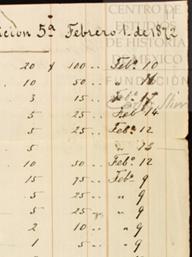 CENTRO DE
ESTUDIOS
DE HISTORIA
DE MEXICO
FUNDACIÓN
cion 5ª Febrero 1. de 1872
20 y 100 .. Febº 10
10 50 .. " 16
3 15 .. Febº 17
5 25 .. Febº 14
5 25 .. Febº 12
5 25 .. " 13
10 50 .. Febº 12
15 75 .. Febº 9
5 25 .. " 9
5 25 " 9
2 10 .. " 9
1 5 .. " 9